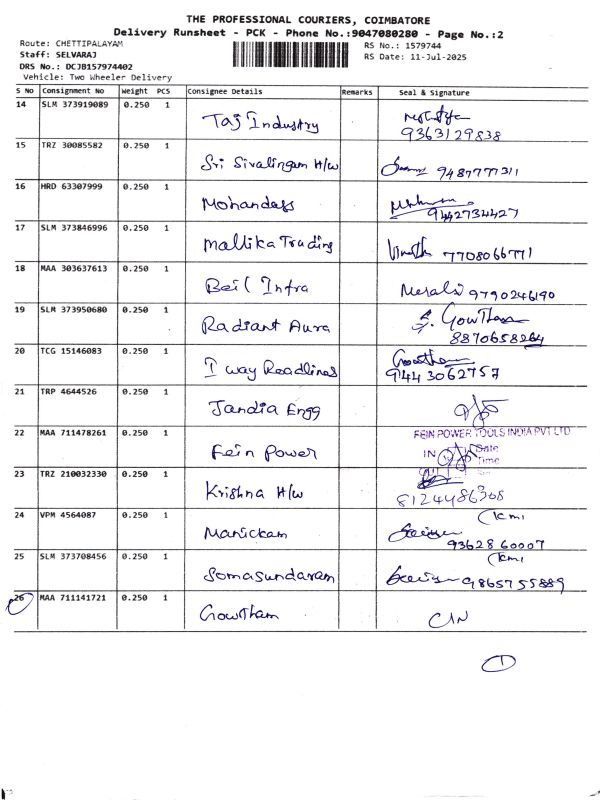 THE PROFESSIONAL COURIERS, COIMBATORE
Delivery Runsheet - PCK - Phone No.:9047080280 - Page No.:2
Route: CHETTIPALAYAM RS No.: 1579744
Staff: SELVARAJ RS Date: 11-Jul-2025
DRS No.: DCJB157974402
Vehicle: Two Wheeler Delivery
S No Consignment No Weight PCS Consignee Details Remarks Seal & Signature
14 SLM 373919089 0.250 1
Taj Industry
9363129838
15 TRZ 30085582 0.250 1
Sri Sivalingam H/w 9487777311
16 HRD 63307999 0.250 1
Mohandass
9442734427
17 SLM 373846996 0.250 1
Mallika Trading Vinoth 7708066771
18 MAA 303637613 0.250 1
Beil Infra 9790246190
19 SLM 373950680 0.250 1
Radiant Aura S. Gowtham
8870658264
20 TCG 15146083 0.250 1
I way Roadlines Gowtham
9443062757
21 TRP 4644526 0.250 1
Jandia Engg
22 MAA 711478261 0.250 1 FEIN POWER TOOLS INDIA PVT LTD
Fein Power IN Date
Time
23 TRZ 210032330 0.250 1
Krishna H/w 8124486368
24 VPM 4564087 0.250 1
Manickam
9362860007
25 SLM 373708456 0.250 1
Somasundaram 9865755889
26 MAA 711141721 0.250 1
Gowtham
1